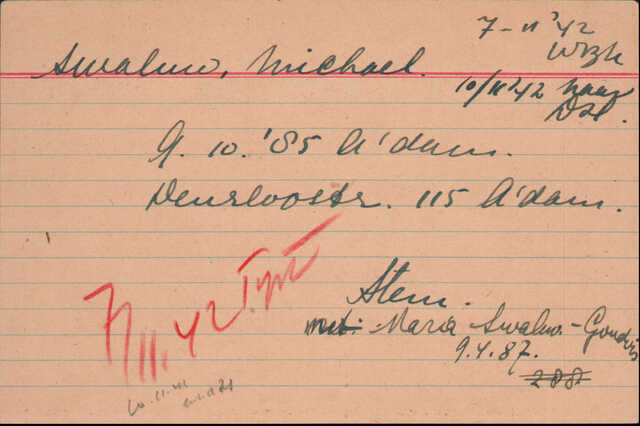 7-11-'42
WBK
Swalmo, Michael.
10/11'42 naar
Dsl.
9.10.'85 A'dam.
Deurloostr. 115 A'dam.
7/11.42
Stem.
met: Maria Swalmo-
9.4.87.
288